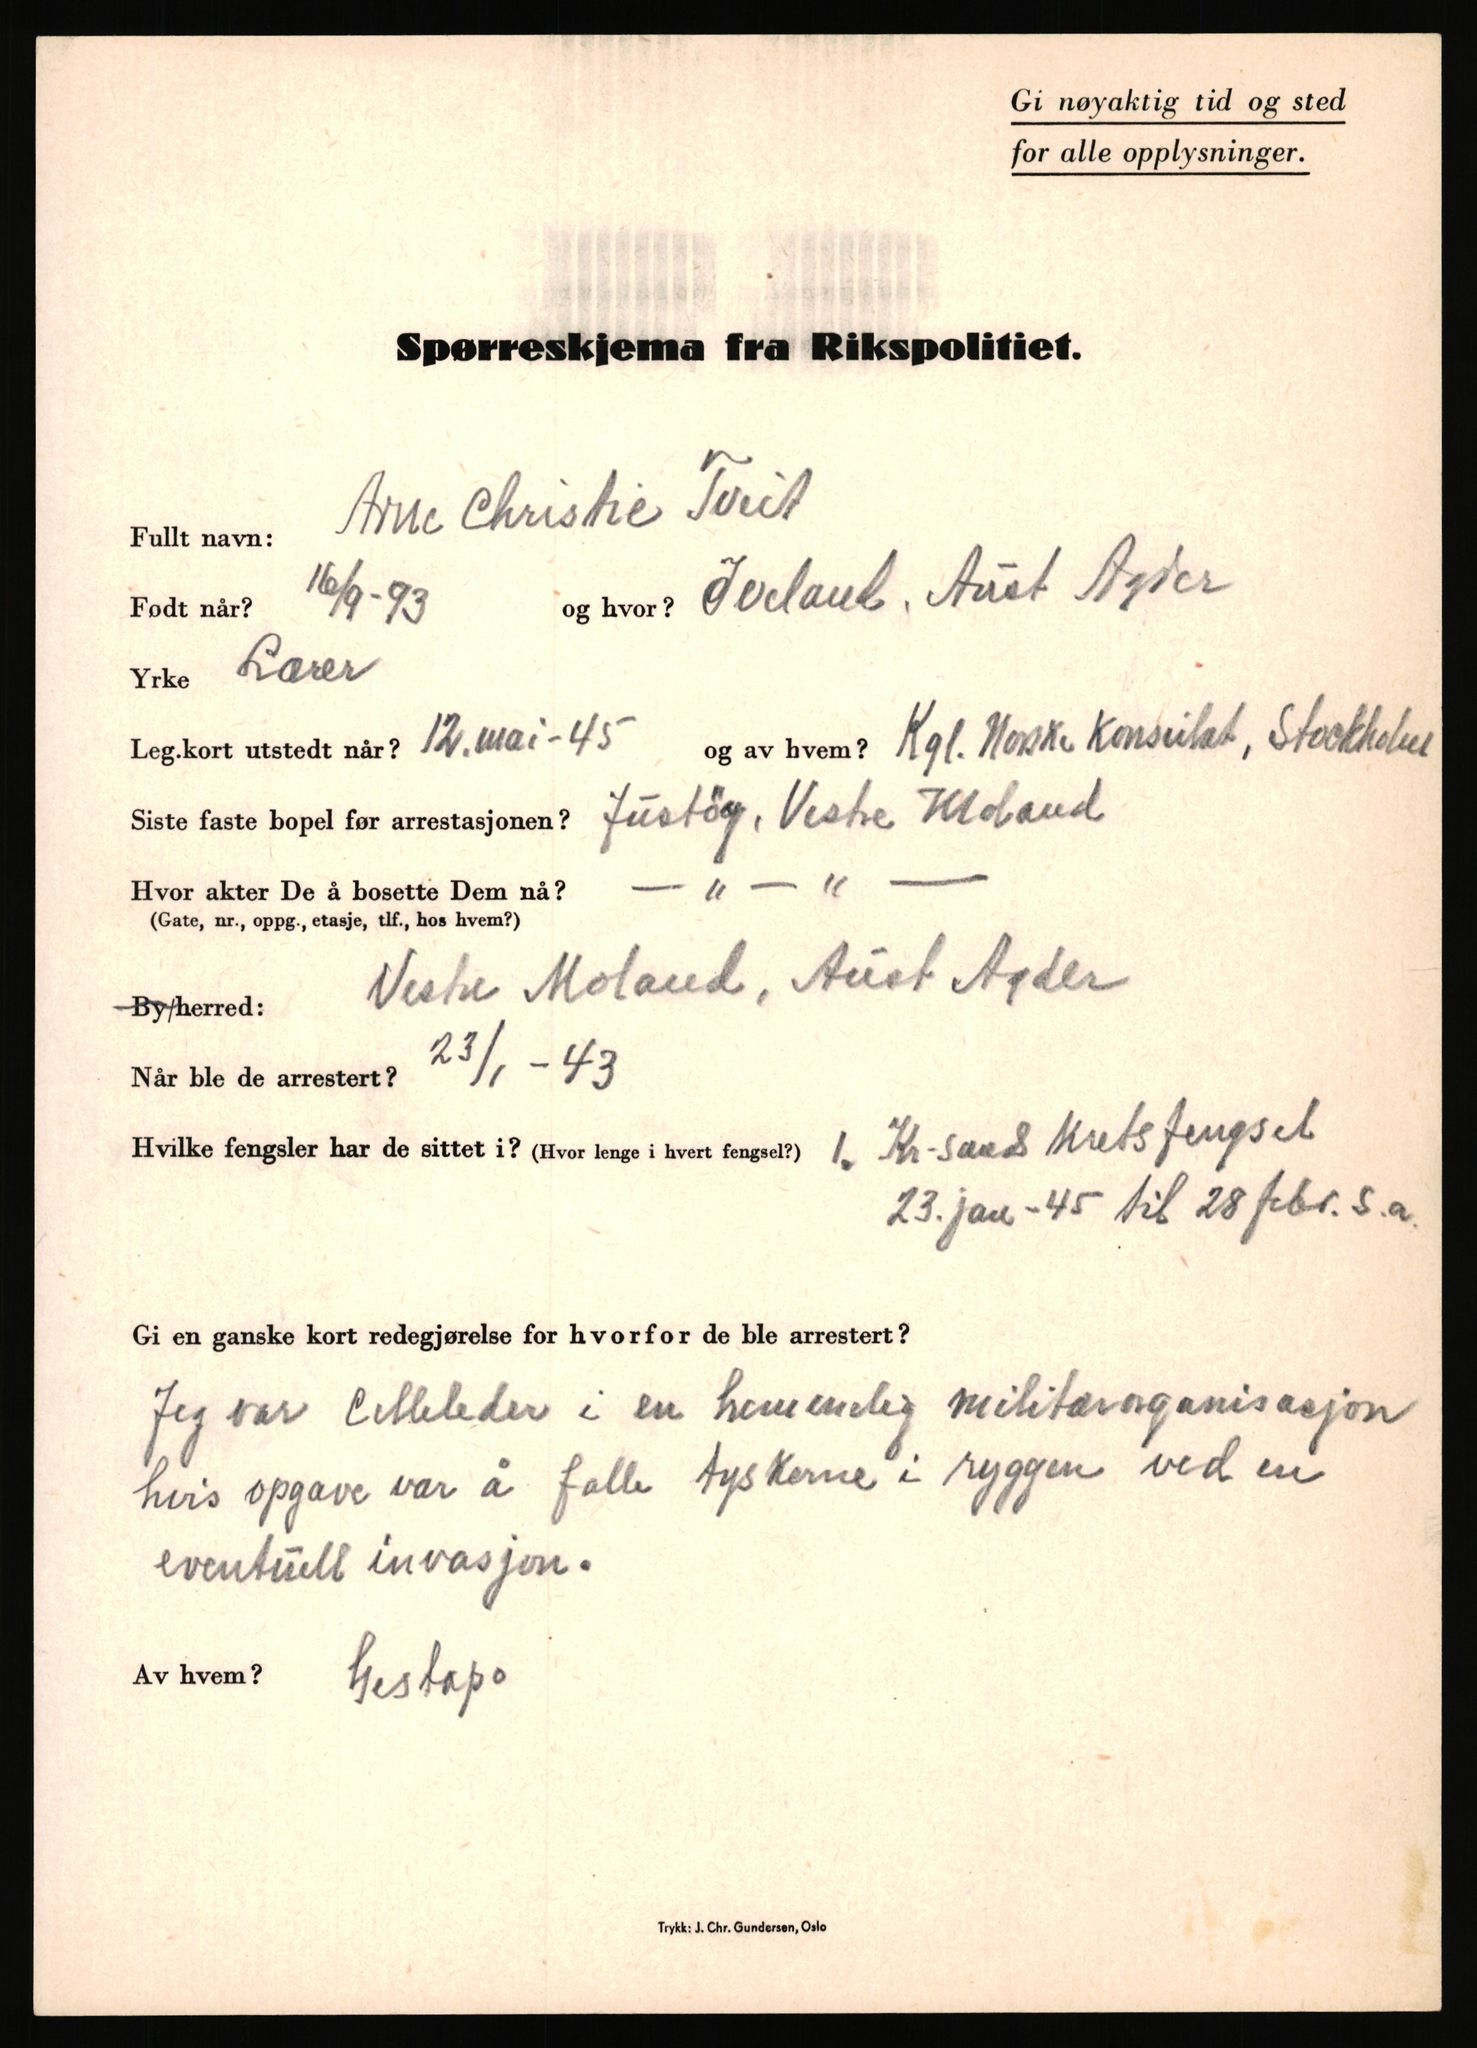 Gi nøyaktig tid og sted
for alle opplysninger.
Spørreskjema fra Rikspolitiet.
Fullt navn: Arne Christie Tveit
Født når? 16/9-93 og hvor? Iveland, Aust Agder
Yrke Lærer
Leg.kort utstedt når? 12. mai-45 og av hvem? Kgl. Norske Konsulat, Stockholm
Siste faste bopel før arrestasjonen? Justöy, Vestre Moland
Hvor akter De å bosette Dem nå? — " — " —
(Gate, nr., oppg., etasje, tlf., hos hvem?)
By/herred: Vestre Moland, Aust Agder
Når ble de arrestert? 23/1-43
Hvilke fengsler har de sittet i? (Hvor lenge i hvert fengsel?) 1. Kr-sands Kretsfengsel
23. jan-45 til 28 febr. s.a.
Gi en ganske kort redegjørelse for hvorfor de ble arrestert?
Jeg var celleleder i en hemmelig militærorganisasjon
hvis opgave var å falle tyskerne i ryggen ved en
eventuell invasjon.
Av hvem? Gestapo
Trykk: J. Chr. Gundersen, Oslo